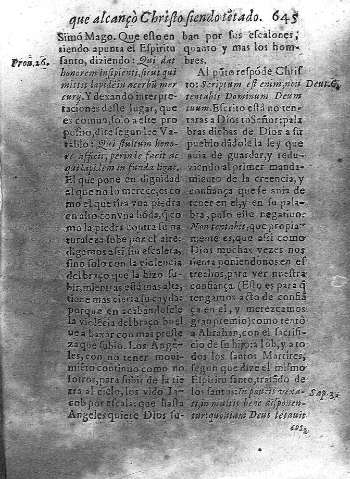 que alcançò Christo siendo tẽtado. 645
Simõ Mago. Que esto en
tiendo apunta el Espiritu
santo, diziendo: Qui dat
honorem insipienti, sicut qui
mittit lapidem in acerbũ mer
cury. Y dexando interpre
taciones deste lugar, que
es comun, solo a este pro
posito, dize segun lee Va
tablo: Qui stultum honore
afficit, perinde facit ac
lapidem in funda liget.
El que pone en dignidad
al que no lo merece, es co
mo el que tira vna piedra
en alto con vna hõda, q̃ co
mo la piedra contra su na
turaleza sube por el aire
digamos assi, sin escalera,
sino solo con la violencia
del braço que la hizo su
bir, mientras està mas alta,
tiene mas cierta su cayda
porque en acabandosele
la violẽcia del braço buel
ue a baxar con mas preste
za que subio. Los Ange
les, con no tener mouimiento
continuo como nosotros,
para subir de la tie
rra al cielo, los vido Ia
cob por escala: que hasta
Angeles quiere Dios su-
ban por sus escalones,
quanto y mas los hom
bres.
Al pũto respõde Chris
to: Scriptum est enim, non
tentabis Dominum Deum
tuum. Escrito està no ten
taras a Dios tu Señor: pa
labras dichas de Dios a su
pueblo dãdole la ley que
auia de guardar, y redu
ziendo al primer manda
miento de la creencia, y
confiança que se auia de
tener en el, y en su pala
bra, puso este negatiuo:
Non tentabis, que propia
mente es, que assi como
Dios muchas vezes nos
tienta poniendonos en es
trechos, para ver nuestra
confiança (Esto es para q̃
tengamos acto de confiã
ça en el, y merezcamos
gran premio) como tentò
a Abrahan, con el sacrifi
cio de su hijo a Iob, y a to
dos los santos Martires,
segun que dize el mismo
Espiritu santo, tratãdo de
los santos: In paucis vexa
ti, in multis bene disponen
tur: quoniam Deus tentauit
eos,
Prou. 26.
Deut. 6.
Sap. 3.